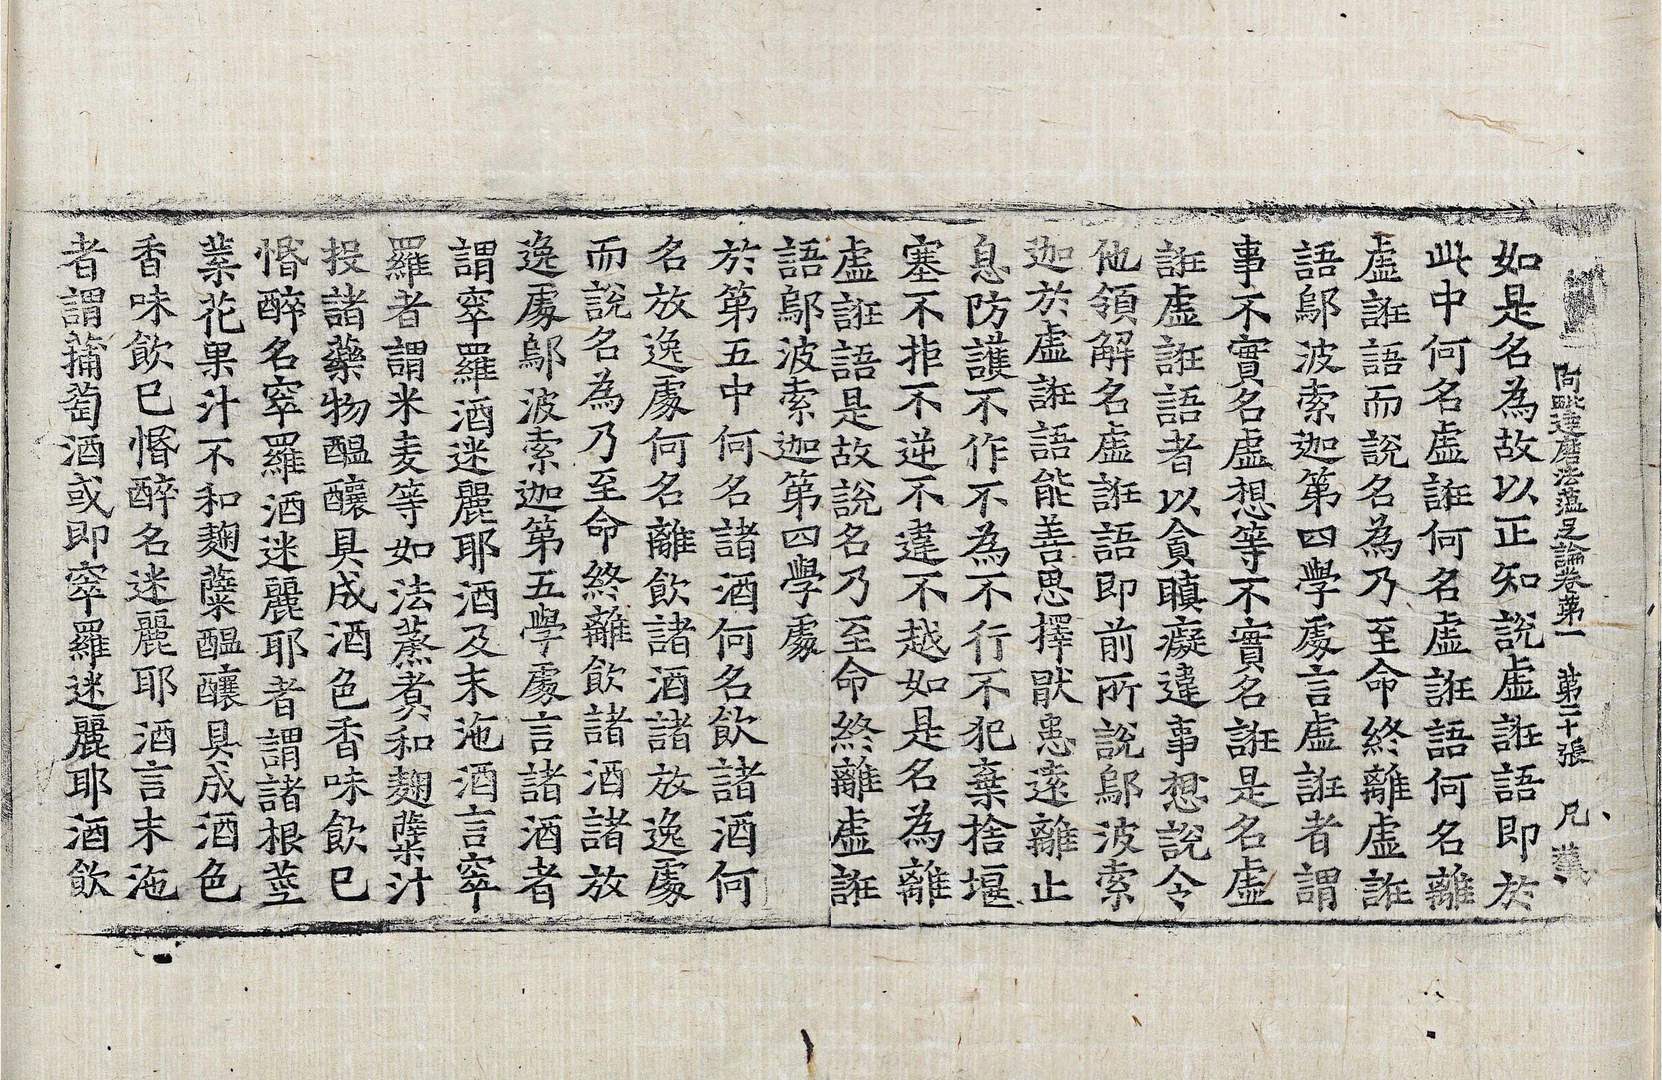 阿毗達磨法蘊足論卷第一 第二十張 凡
如是名為故以正知說虛誑語即於
此中何名虛誑何名虛誑語何名離
虛誑語而說名為乃至命終離虛誑
語鄔波索迦第四學處言虛誑者謂
事不實名虛想等不實名誑是名虛
誑虛誑語者以貪瞋癡違事想說令
他領解名虛誑語即前所說鄔波索
迦於虛誑語能善思擇猒患遠離止
息防護不作不為不行不犯棄捨堰
塞不拒不逆不違不越如是名為離
虛誑語是故說名乃至命終離虛誑
語鄔波索迦第四學處
於第五中何名諸酒何名飲諸酒何
名放逸處何名離飲諸酒諸放逸處
而說名為乃至命終離飲諸酒諸放
逸處鄔波索迦第五學處言諸酒者
謂窣羅酒迷麗耶酒及末沲酒言窣
羅者謂米麦等如法蒸煑和麹糵汁
投諸藥物醞釀具成酒色香味飲已
惛醉名窣羅酒迷麗耶者謂諸根莖
葉花果汁不和麹糵醞釀具成酒色
香味飲已惛醉名迷麗耶酒言末沲
者謂蒱萄酒或即窣羅迷麗耶酒飲